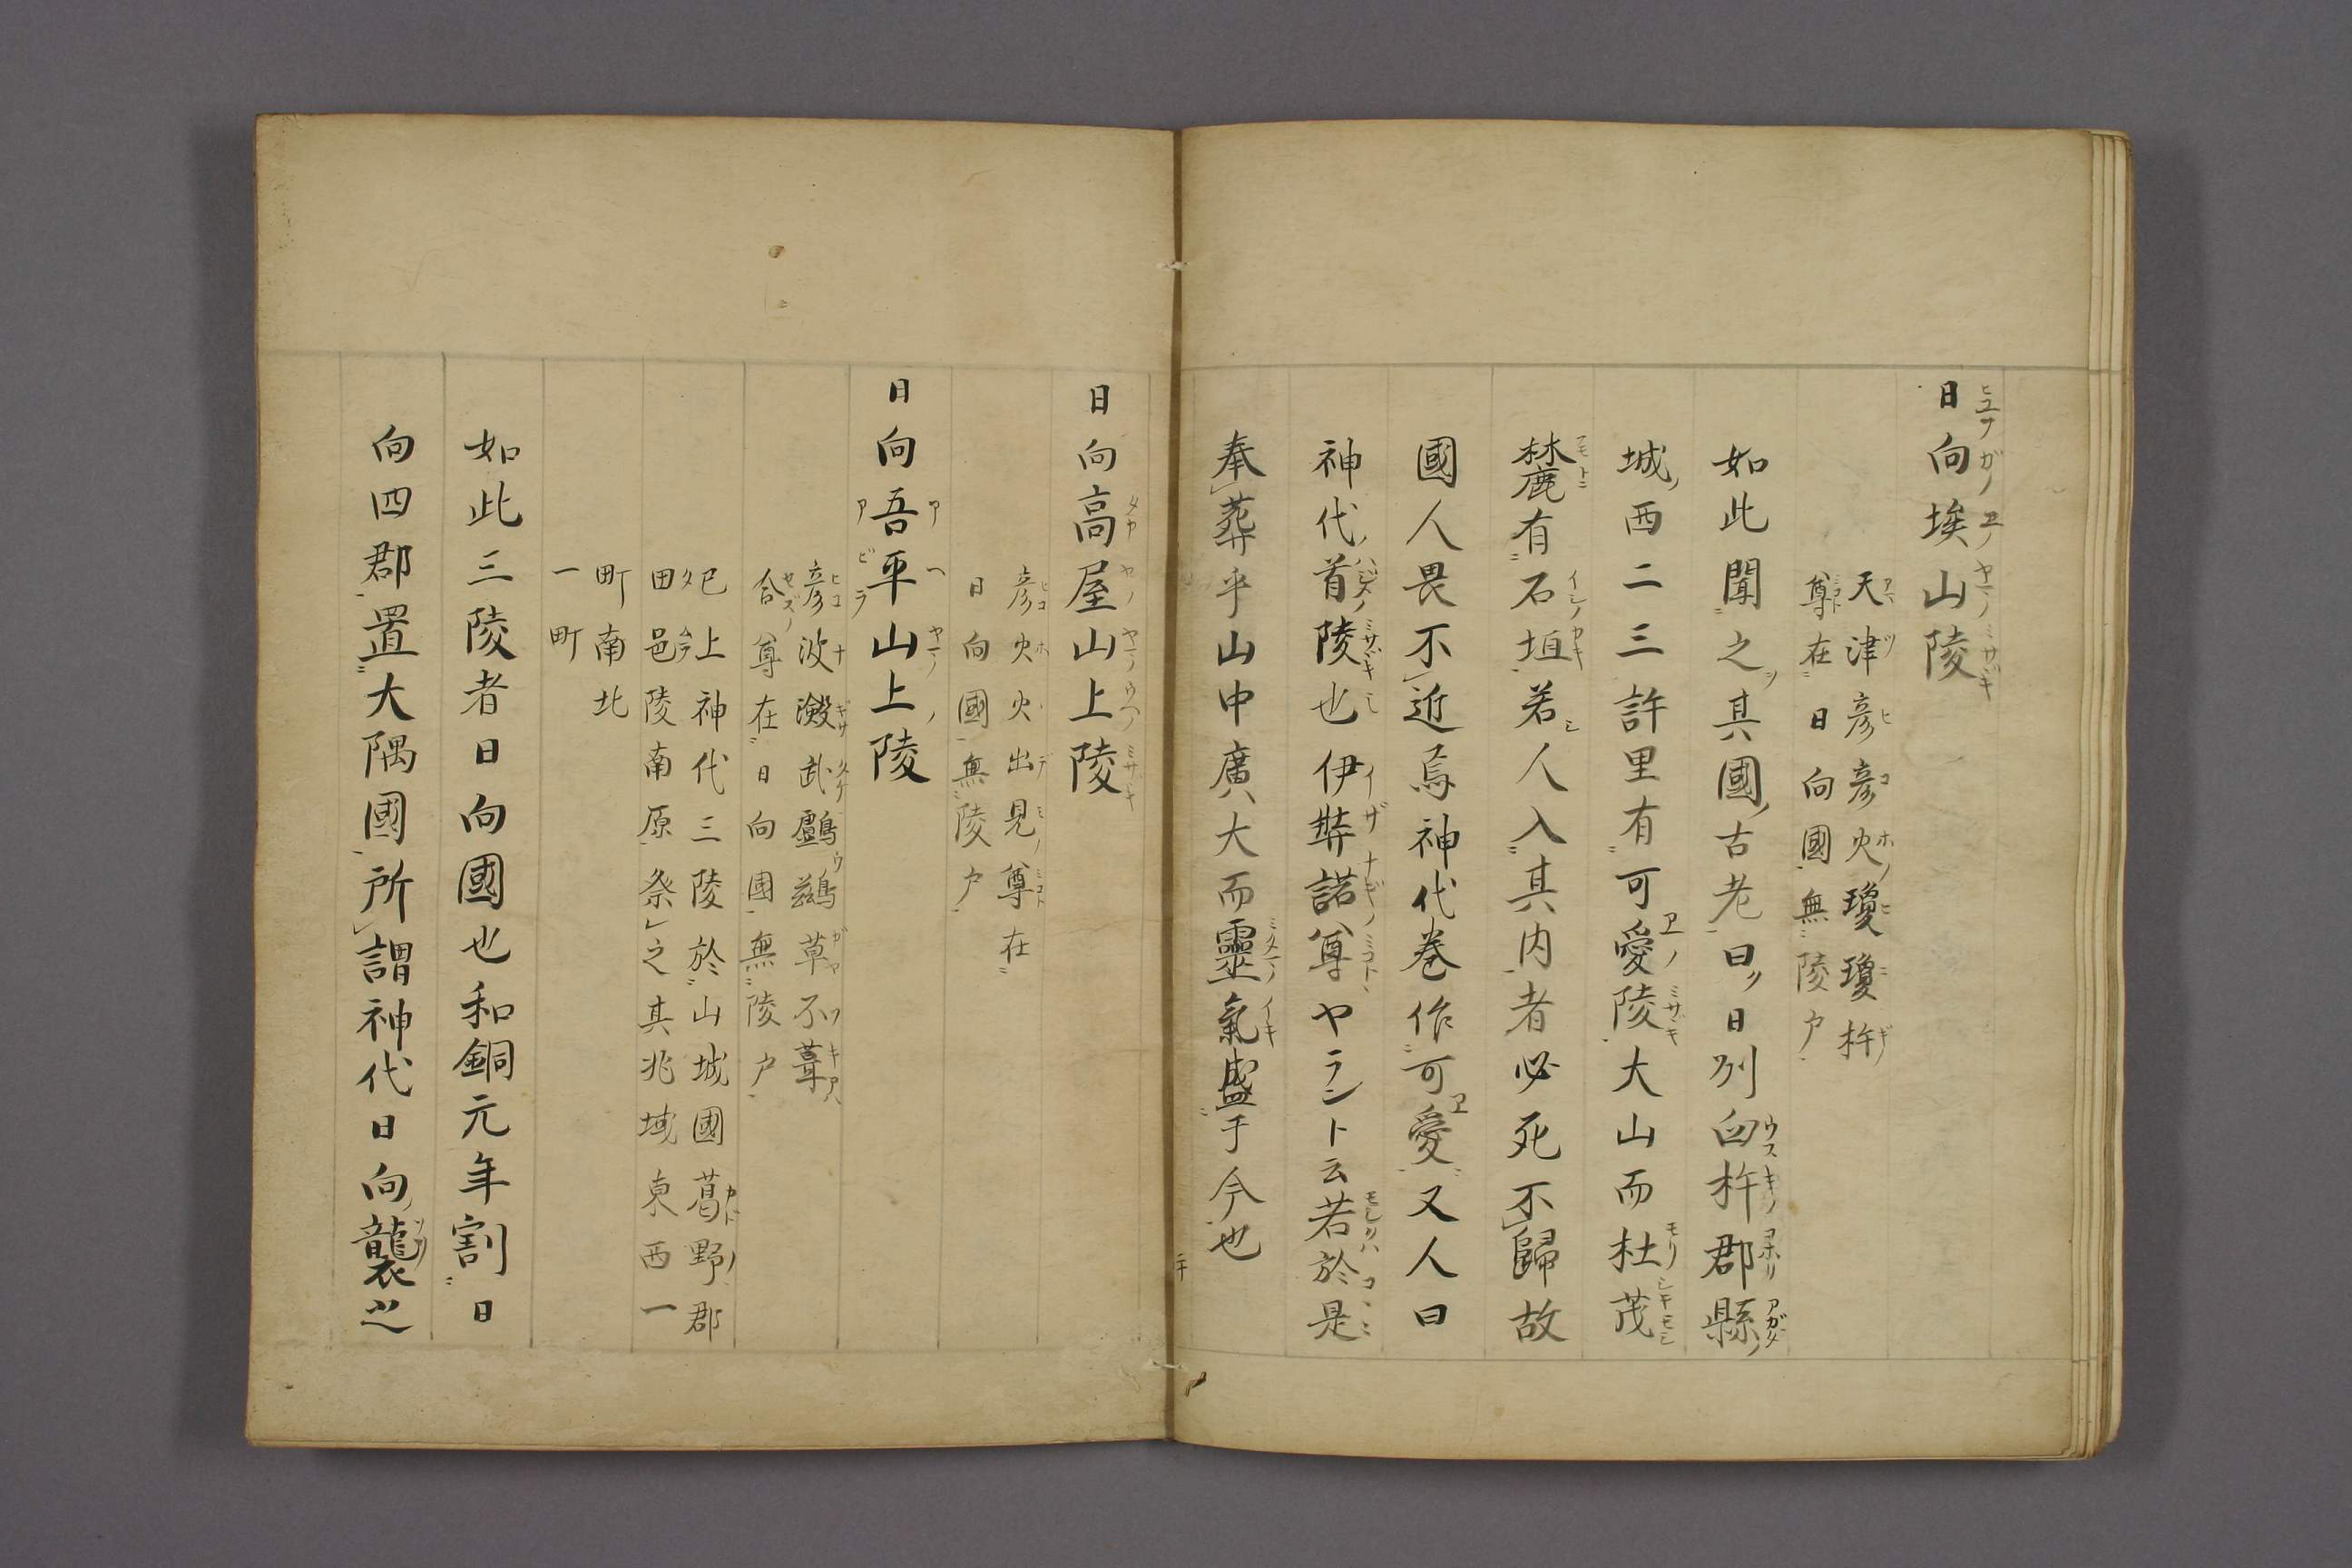 日向埃山陵
天津彦彦火瓊瓊杵
尊在日向國無陵戸
如此聞之其國古老曰日州臼杵郡縣
城西二三許里有可愛陵大山而杜茂
麓有石垣若人入其内者必死不歸故
國人畏不近焉神代巻作可愛又人曰
神代首陵也伊弉諾尊ヤラント云若於是
奉葬乎山中廣大而靈氣盛于今也
日向高屋山上陵
彦火火出見尊在
日向國無陵戸
日向吾平山上陵
彦波瀲武鸕鷀草不葺
合尊在日向國無陵戸
已上神代三陵於山城國葛野郡
田邑陵南原祭之其兆域東西一
町南北
一町
如此三陵者日向國也和銅元年割日
向四郡置大隅國所謂神代日向襲之